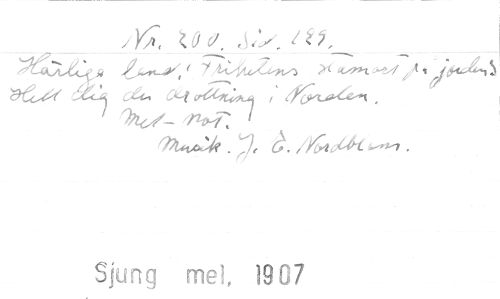 Nr. 200. Sid. 189.
Härliga land! Frihetens stamort på jorden
Hell dig du drottning i Norden.
Met-not.
Musik. J. E. Nordblom.
Sjung mel, 1907